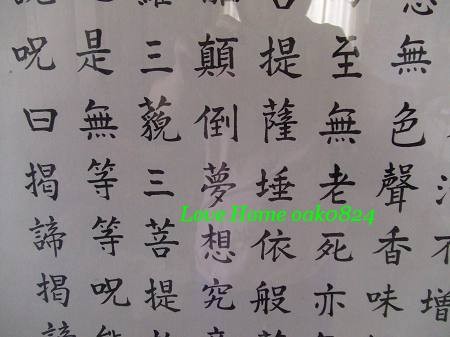 不增
無色聲香味
至無老死亦
提薩埵依般
顛倒夢想究
三藐三菩提
是無等等呪
呪曰揭諦揭諦
Love Home oak0824